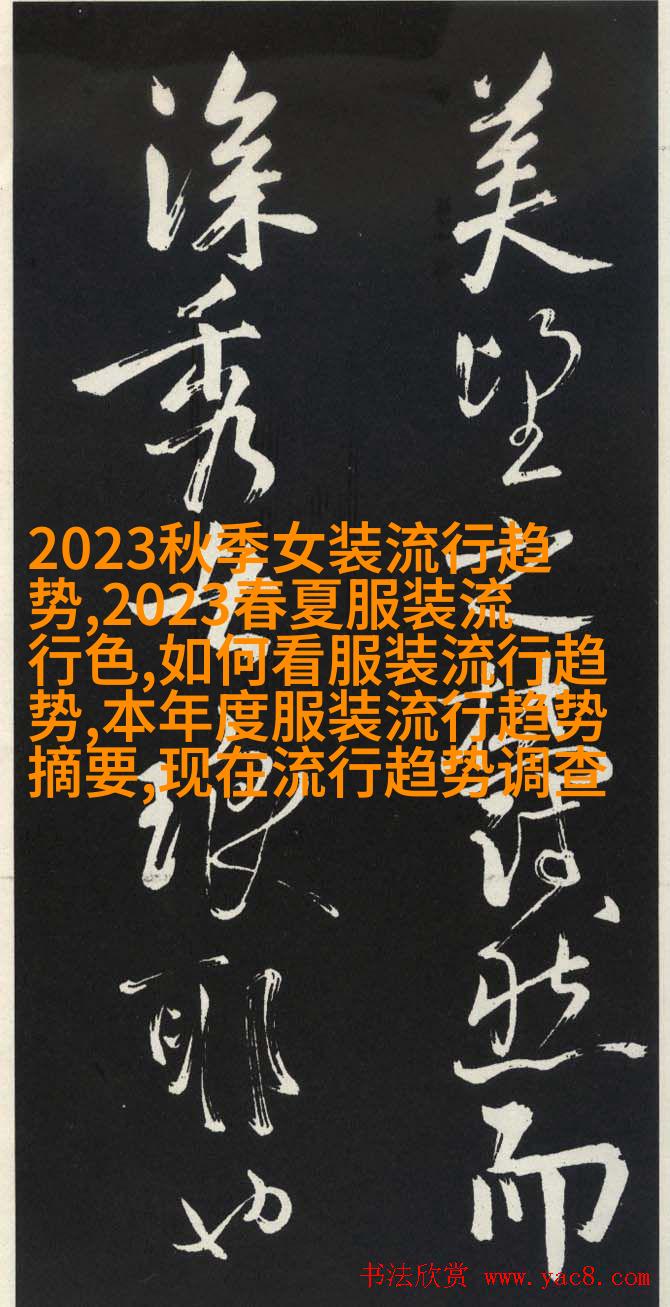 美望之蔚然而
深秀者琅耶也
2023秋季女装流行趋
势,2023春夏服装流
行色,如何看服装流行趋
势,本年度服装流行趋势
摘要,现在流行趋势调查
书法欣赏 www.yac8.com